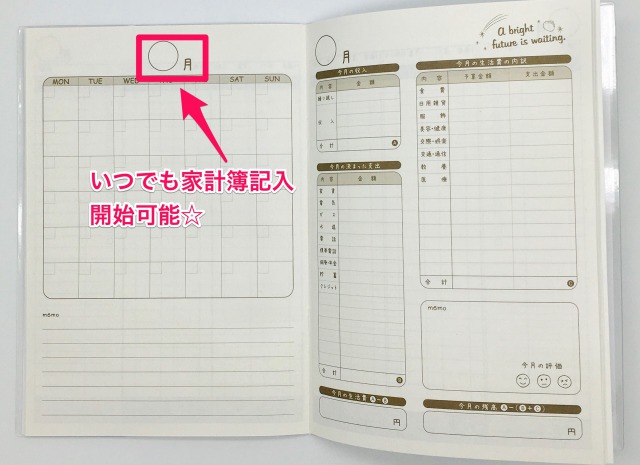 月
MON TUE WED SAT SUN
いつでも家計簿記入
開始可能☆
memo
月
A bright
future is waiting.
今月の収入
内容 金額
収入
合計 A
今月の決まった支出
内容 金額
家賃
電気
ガス
水道
電話
携帯電話
保険・年金
貯蓄
クレジット
合計 B
今月の生活費の内訳
内容 予算金額 支出金額
食費
日用雑貨
服飾
美容・健康
交際・娯楽
交通・通信
教養
医療
合計 C
memo
今月の評価
今月の生活費 A-B
円
今月の残高 A-(B+C)
円